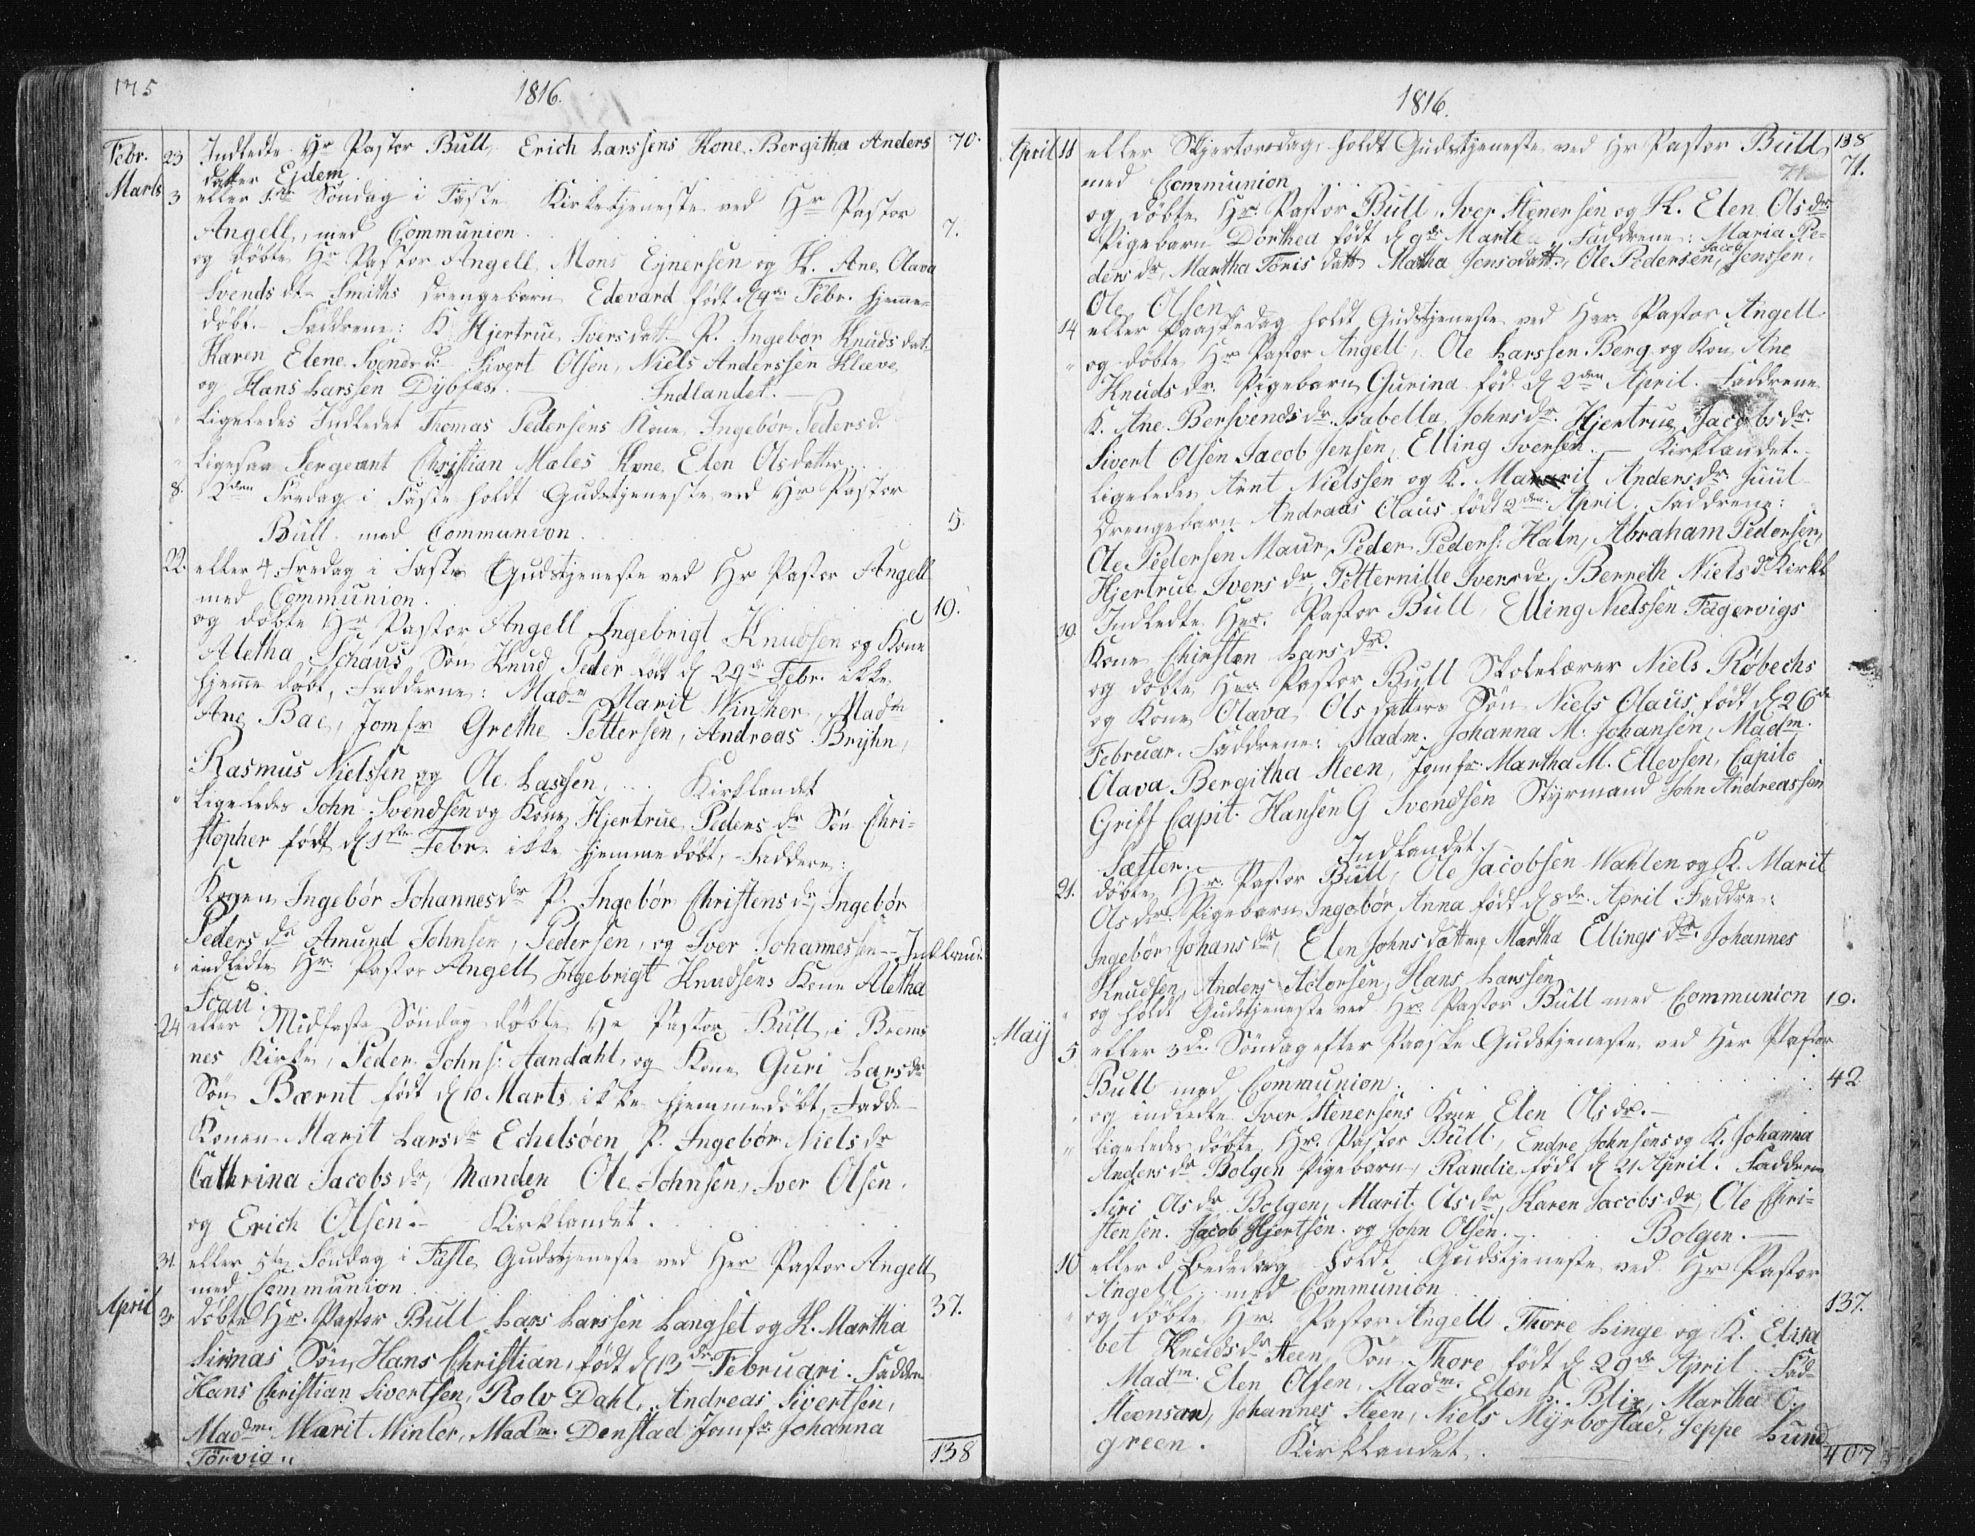 175
1816.
Febr. 23 Indledte Hr Pastor Bull, Erich Larssens Kone Bergitha Anders 70.
datter Ejdem
Marts 3 eller 1ste Søndag i Faste Kirketjeneste ved Hr Pastor
Angell, med Communion 7.
og døbte Hr Pastor Angell, Mons Ejnersen og K. Ane Olava
Svends dt. Smiths Drengebarn Edevard født d 4de Febr. hjemme-
døbt. Faddrene: K Hjertrue Iversdatt P. Ingebor Knudsdat.
Karen Elene Svendsdr. Sivert Olsen, Niels Anderssen Kleve,
og Hans Larssen Dybfest. Indlandet.
Ligeledes Indledet Thomas Pedersens Kone Ingebor Pedersd.
Ligesaa Sergeant Christian Males Kone Elen Olsdatter
8. 2den Fredag i Faste holdt Gudstjeneste ved Hr Pastor
Bull med Communion 5.
22. eller 4 Fredag i Faste Gudstjeneste ved Hr Pastor Angell
med Communion 19.
og døbte Hr Pastor Angell Ingebrigt Knudsen og Kone
Aletha Schaus Søn Knud Peder født d 29de Febr. ikke
hjemme døbt, Fadderne: Madm Marit Winther, Madm
Ane Bac, Jomfr Grethe Pettersen, Andreas Bryhn,
Rasmus Nielssen og Ole Lassen, Kirklandet
Ligeledes John Svendsen og Kone Hjertrue Peders dr Søn Chri-
stopher født d 1ste Febr. ikke hjemmedøbt, Faddere:
Konen Ingebør Johannesdr P. Ingebør Christensdr, Ingebør
Peders dr Amund Johnsen, Pedersen, og Iver Johannessen - Indland
indledte Hr. Pastor Angell Ingebrigt Knudsens Kone Aletha
Scau.
24 eller Midfaste Søndag døbte Hr Pastor Bull i Brems
nes Kirke, Peder Johns: Aandahl, og Kone Guri Larsdr
Søn Bærnt født d 10 Marts ikke hjemmedøbt, Fadde-
Konen Marit Larsdr Echelsøen P. Ingebør Nielsdr
Cathrina Jacobsdr, Manden Ole Johnsen, Iver Olsen
og Erich Olsen. Kirklandet.
31. eller 5te Søndag i Faste Gudstjeneste ved Her Pastor Angell
med Communion 37.
April 3 døbte Hr. Pastor Bull Lars Larssen Langset og K. Martha
Sirinas Søn Hans Christian, født d 13de Februari. Faddre
Hans Christian Sivertsen, Rolv Dahl, Andreas Sivertsen,
Madm. Marit Minlor, Madm. Denstad Jomfr Johanna
Torvig.. 138
1816.
April 11 eller Skjertorsdag holdt Gudstjeneste ved Hr Pastor Bull 138
med Communion 71.
og døbte Hr. Pastor Bull Iver Stenersen og K. Elen Olsdrs
Pigebarn Dorthea født d 9de Marts, Faddrene: Maria Pe-
dersdr, Martha Tøris datt Martha Jensdatt., Ole Pedersen, Jacob Jenssen,
Ole Olsen
14 eller Paaskedag holdt Gudstjeneste ved Her. Pastor Angell
og døbte Hr Pastor Angell, Ole Larssen Berg og Kon Ane
Knudsdr. Pigebarn Gurina fød d 2den April. Faddrene
K. Ane Bersvendsdr. Isabella Johnsdr. Hjertrue Jacobsdr.
Sivert Olsen Jacob Jensen, Elling Iversen. Kirklandet.
Ligeledes Arnt Nielssen og K. Margrit Andersdr. Juul
Drengebarn Andreas Olaus født 2den April. Faddrene:
Ole Pedersen Maur, Peder Peders: Haln, Abraham Pedersen,
Hjertrue Iversdr, Petternille Iversdr., Berreth Nielsdr Kirkl
19. Indledte Her. Pastor Bull, Elling Nielssen Fagervigs
Kone Chirsten Larsdr.
og døbte Her. Pastor Bull Skolelærer Niels Røbechs
og Kone Olava Olsdatters Søn Niels Olaus født d 26de
Februar. Faddrene: Madm. Johanna M. Johansen, Madm.
Olava Bergitha Steen, Jomfr. Martha M. Ellevsen, Capit:
Griff Capit. Hansen G Svendsen Styrmand John Andreassen
Sætter. Indlandet.
21. døbte Hr. Pastor Bull, Ole Jacobsen Wahlen og K. Marit
Olsdrs Pigebarn Ingebør Anna født d 8de April Faddre:
Ingebør Johansdr, Elen Johnsdatter, Martha Ellingsdr. Johannes
Knudsen, Anders Actorsen, Hans Larssen,
og holdt Gudstjeneste ved Hr. Pastor Bull med Communion 19.
May 5 eller 3de Søndag efter Paaske Gudstjeneste ved Her Pastor
Bull med Communion 42
og indledte Iver Stenersens Kone Elen Olsdr.
Ligeledes døbte Hr. Pastor Bull, Endre Johnsens og K. Johanna
Andersdr Bolgen Pigebarn Randie født d 21 April. Faddrene
Siri Olsdr Bolgen, Marit Olsdr, Karen Jacobsdr, Ole Chri-
stensen. Jacob Hjertsen. og John Olsen. Bolgen.
10 eller d. Bededag holdt Gudstjeneste ved Hr. Pastor
Angell med Communion 137.
og døbte Hr. Pastor Angell Thore Linge og K. Elisa
bet Knudsdr Steen Søn Thore født d 29de April Fad-
Madm. Elen Olsen, Madm. Elen Blix, Martha O.
Steensen, Johannes Steen, Niels Myrbostad, Jeppe Lund
green. Kirklandet. 407